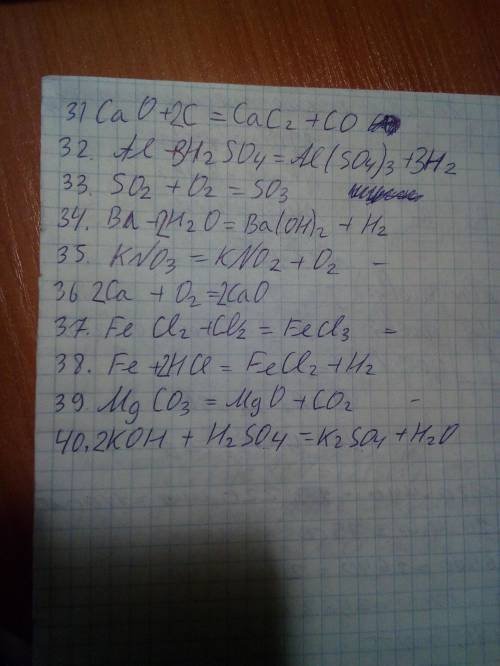 31 CaO + 2C = CaC2 + CO
32. Al + 3H2SO4 = Al(SO4)3 + 3H2
33. SO2 + O2 = SO3
34. Ba + 2H2O = Ba(OH)2 + H2
35. KNO3 = KNO2 + O2 -
36 2Ca + O2 = 2CaO
37. FeCl2 + Cl2 = FeCl3 -
38. Fe + 2HCl = FeCl2 + H2
39. MgCO3 = MgO + CO2 -
40. 2KOH + H2SO4 = K2SO4 + H2O